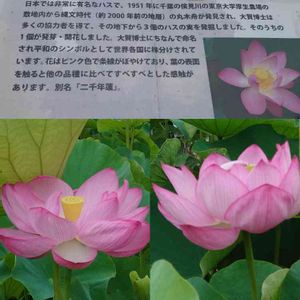 日本では非常に有名なハスで、1951年に千葉の検見川の東京大学厚生農場の
敷地内から縄文時代（約2000年前の地層）の丸木舟が発見され、大賀博士は
多くの協力者を得て、その地下から３個のハスの実を発掘しました。そのうちの
１個が発芽・開花しました。大賀博士にちなんで命名
され平和のシンボルとして世界各国に株分けされて
います。花はピンク色で条線がぼやけており、葉の表面
を触ると他の品種に比べてすべすべとした感触が
あります。別名「二千年蓮」。